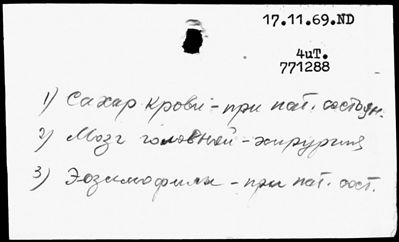 17.11.69.ND
4иТ.
771288
1) Сахар крови - при пат. состоян.
2) Мозг головной - хирургия
3) Эозинофилы - при пат. сост.